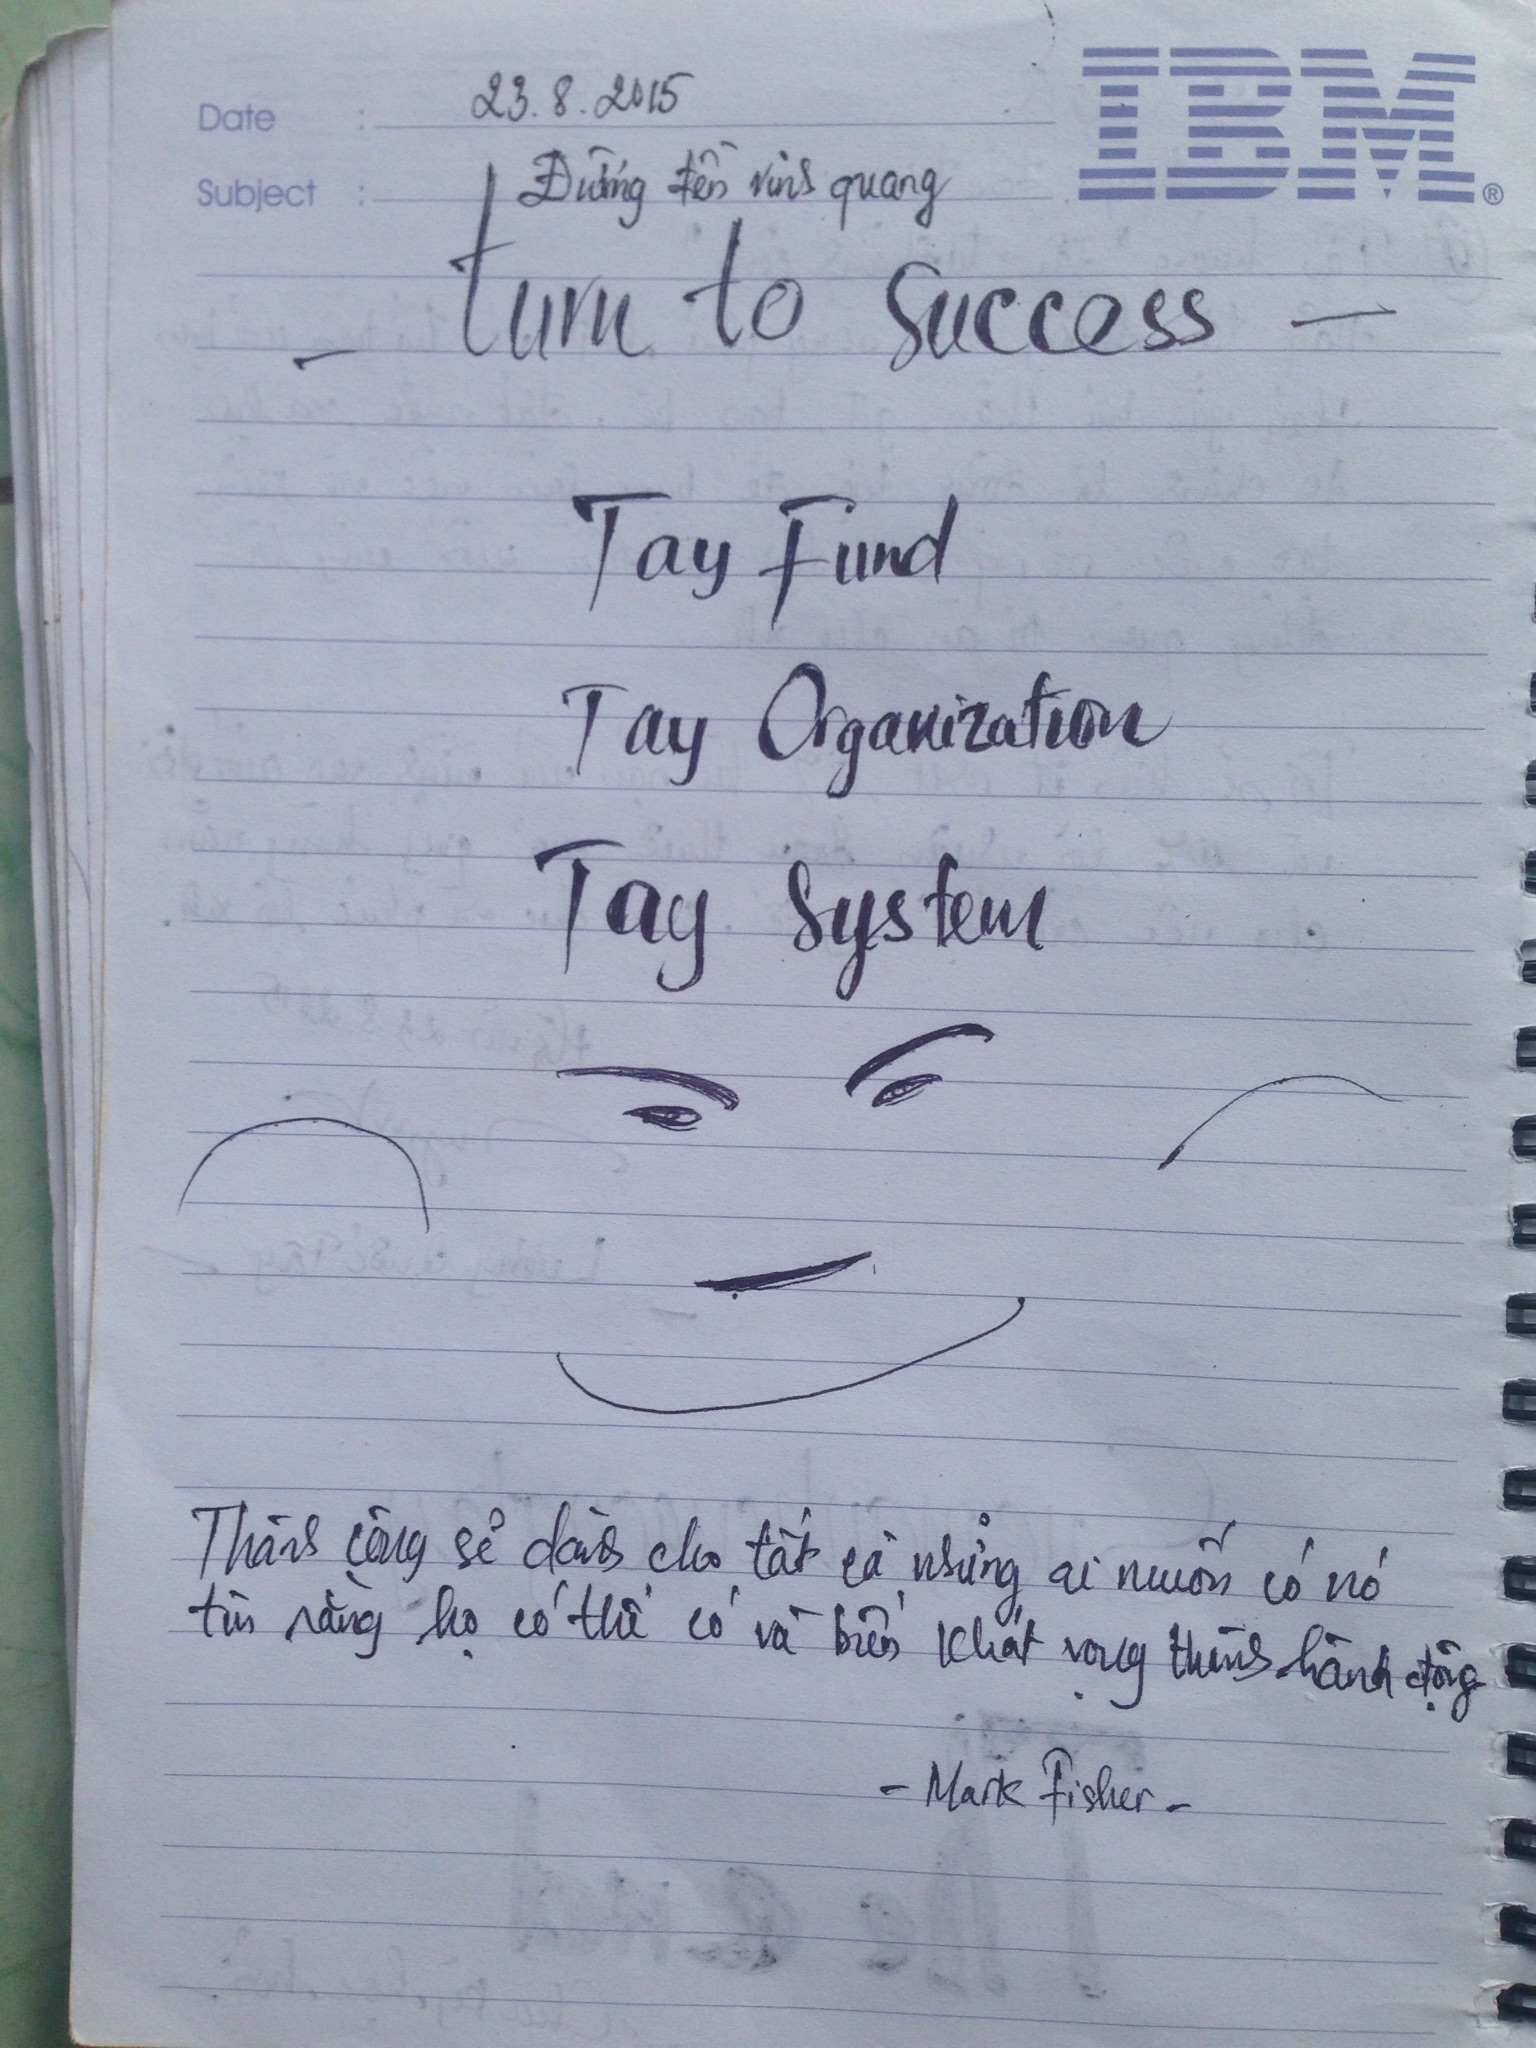 IBM®
Date : 23.8.2015
Subject : Đường đến vinh quang
_ turn to success —
Tay Fund
Tay Organization
Tay System
Thành công sẽ dành cho tất cả những ai muốn có nó
tin rằng họ có thể có và biến khát vọng thành hành động
- Mark Fisher -